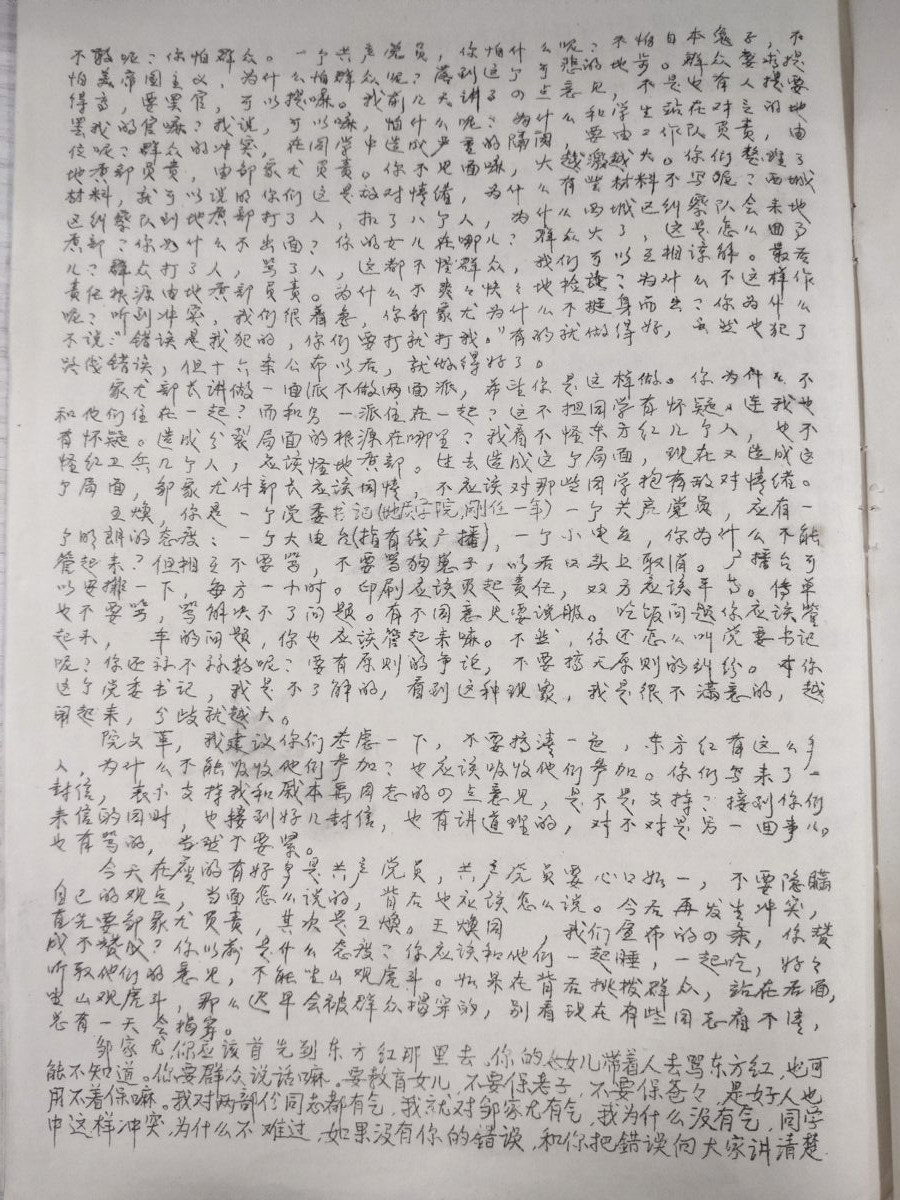 不敢呢？你怕群众。一个共产党员，你怕什么呢？不怕日本鬼子，不
怕美帝国主义，为什么怕群众呢？落到这个可悲的地步。群众要求提
得高，要罢官，可以提嘛。我前几天讲了の点意见，不是也有人提要
罢我的官嘛？我说，可以嘛，怕什么呢？为什么和学生站在对立的地
位呢？群众的冲突，在同学中造成严重的隔阂，要由工作队负责，由
地质部负责，由邹家尤负责。你不见面嘛，越激越大。你们整谁了
材料，我可以说的你们这是敌对情绪，为什么有些材料不写呢？西城
这纠察队到地质部打了人，扣了八个人，为什么西城区纠察队会来地
质部？你为什么不出面？你的女儿在哪儿？群众大了，这是怎么回了
儿？群众打了人，骂了人，这都不怪群众，我们可以互相谅解。最后
责任根源由地质部负责。为什么不爽々快々地检讨？为什么不这样作
呢？听到冲突，我们很着急，你邹家尤为什么不挺身而出？你为什么
不说：“错误是我犯的，你们要打就打我。”有的就做得好，虽然也犯了
路线错误，但十六条公布以后，就做得好了。
家尤部长讲做一面派不做两面派，希望你是这样做。你为什么不
和他们住在一起？而和另一派住在一起？这不担同学有怀疑。连我也
有怀疑。造成分裂局面的根源在哪里？我看不怪东方红几个人，也不
怪红卫兵几个人，应该怪地质部。过去造成这个局面，现在又造成这
个局面，邹家尤付部长应该同情，不应该对那些同学抱有敌对情绪。
王焕，你是一个党委书记（地质学院，刚任一年）一个共产党员，应有一
个明朗的态度：一个大电台（指有线广播），一个小电台，你为什么不能
管起来？但相互不要骂，不要骂狗崽子，以后口头上取消。广播台可
以安排一下，每方一小时。印刷应该负起责任，双方应该平等。传单
也不要骂，骂解决不了问题。有不同意见要说服。吃饭问题你应该管
起来，车的问题，你也应该管起来嘛。不然，你还怎么叫党委书记
呢？你还称不称职呢？要有原则的争论，不要搞无原则的纠纷。本你
这个党委书记，我是不了解的，看到这种现象，我是很不满意的，越
闹起来，分歧就越大。
院文革，我建议你们考虑一下，不要搞凑一起，东方红有这么多
人，为什么不能吸收他们参加？也应该吸收他们参加。你们写来了一
封信，表示支持我和戚本禹同志的の点意见，是不是支持？接到你们
来信的同时，也接到好几封信，也有讲道理的，对不对是另一回事儿。
也有骂的，当然不要紧。
今天在座的有好多是共产党员，共产党员要心口如一，不要隐瞒
自己的观点，当面怎么说的，背后也应该怎么说。今后再发生冲突，
首先要邹家尤负责，其次是王焕。王焕同，我们宣布的の条，你赞
成不赞成？你以前是什么态度？你应该和他们一起睡，一起吃，好々
听取他们的意见，不能坐山观虎斗。如果在背后挑拨群众，站在后面，
坐山观虎斗，那么迟早会被群众揭穿的，别看现在有些同志看不清，
总有一天会揭穿。
邹家尤，你应该首先到东方红那里去。你的女儿带着人去骂东方红，也可
能不知道。你要群众说话嘛。要教育女儿，不要保老子，不要保爸々，是好人也
用不着保嘛。我对两部份同志都有气，我就对邹家尤有气，我为什么没有气，同学
中这样冲突，为什么不难过，如果没有你的错误，和你把错误向大家讲清楚